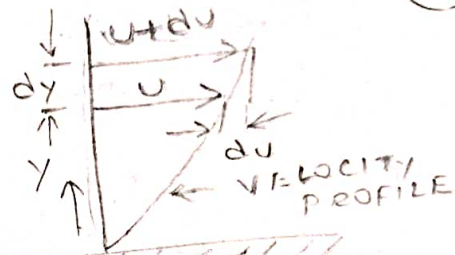 U+du
dy
U
du
Y
VELOCITY
PROFILE